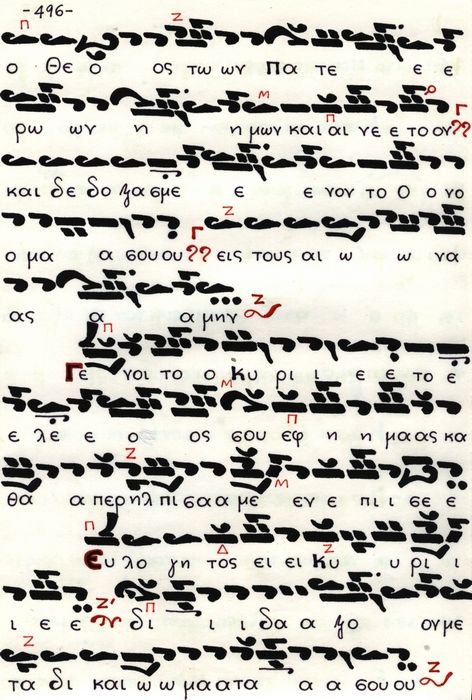 -496-
ο Θε ο ος τω ων Πα τε ε ε
ρω ων η η μων και αι νε ε το ον
και δε δο ξα σμε ε ε νον το Ο ο νο
ο μα α σου ου εις τους αι ω ω να
ας α α μην
Γε νοι το Κυ ρι ι ε ε το ε
ε λε ε ο ος σου εφ η η μα ας κα
θα α περ ηλ πι σα α με εν ε πι ι σε ε
Ευ λο γη τος ει ει Κυ υ ρι ι
ι ε ε δι ι ι δα α ξο ον με
τα δι και ω ω μα α τα α α σου ου